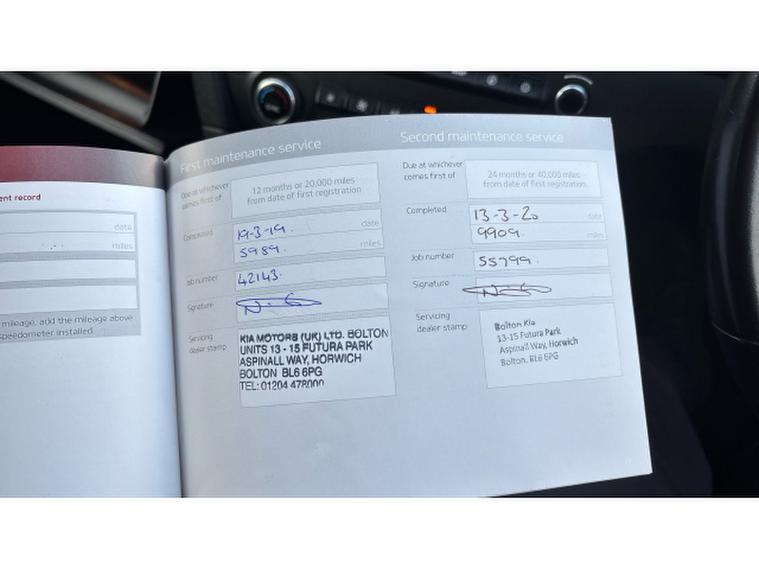 ent record
date
miles
mileage, add the mileage above
speedometer installed.
First maintenance service
Due at whichever
comes first of
12 months or 20,000 miles
from date of first registration
Completed
19-3-19.
date
5989.
miles
Job number
42143.
Signature
Servicing
dealer stamp
KIA MOTORS (UK) LTD. BOLTON
UNITS 13 - 15 FUTURA PARK
ASPINALL WAY, HORWICH
BOLTON BL6 6PG
TEL: 01204 478000
Second maintenance service
Due at whichever
comes first of
24 months or 40,000 miles
from date of first registration
Completed
13-3-20
date
9909.
miles
Job number
55799.
Signature
Servicing
dealer stamp
Bolton Kia
13-15 Futura Park
Aspinall Way, Horwich
Bolton. BL6 6PG